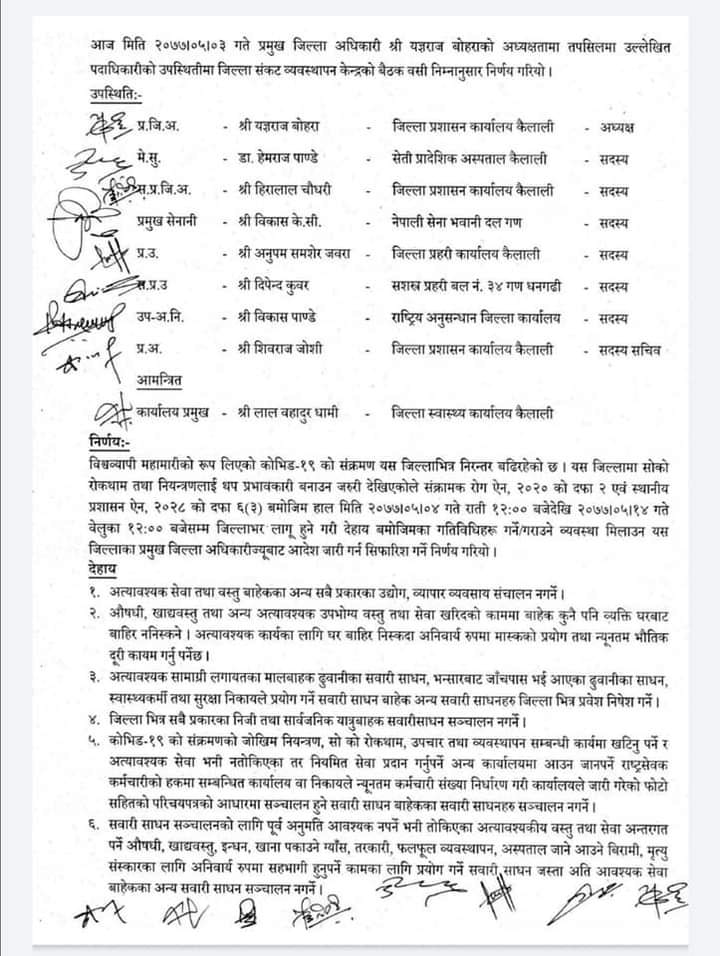 आज मिति २०७७।०५।०३ गते प्रमुख जिल्ला अधिकारी श्री यज्ञराज बोहराको अध्यक्षतामा तपसिलमा उल्लेखित
पदाधिकारीको उपस्थितीमा जिल्ला संकट व्यवस्थापन केन्द्रको बैठक वसी निम्नानुसार निर्णय गरियो ।
उपस्थिति:-
प्र.जि.अ. - श्री यज्ञराज बोहरा - जिल्ला प्रशासन कार्यालय कैलाली - अध्यक्ष
मे.सु. - डा. हेमराज पाण्डे - सेती प्रादेशिक अस्पताल कैलाली - सदस्य
स.प्र.जि.अ. - श्री हिरालाल चौधरी - जिल्ला प्रशासन कार्यालय कैलाली - सदस्य
प्रमुख सेनानी - श्री विकास के.सी. - नेपाली सेना भवानी दल गण - सदस्य
प्र.उ. - श्री अनुपम समशेर जवरा - जिल्ला प्रहरी कार्यालय कैलाली - सदस्य
स.प्र.उ - श्री दिपेन्द कुवर - सशस्त्र प्रहरी बल नं. ३४ गण धनगढी - सदस्य
उप-अ.नि. - श्री विकास पाण्डे - राष्ट्रिय अनुसन्धान जिल्ला कार्यालय - सदस्य
प्र.अ. - श्री शिवराज जोशी - जिल्ला प्रशासन कार्यालय कैलाली - सदस्य सचिव
आमन्त्रित
कार्यालय प्रमुख - श्री लाल वहादुर धामी - जिल्ला स्वास्थ्य कार्यालय कैलाली
निर्णय:-
विश्वव्यापी महामारीको रूप लिएको कोभिड-१९ को संक्रमण यस जिल्लाभित्र निरन्तर बढिरहेको छ । यस जिल्लामा सोको
रोकथाम तथा नियन्त्रणलाई थप प्रभावकारी बनाउन जरुरी देखिएकोले संक्रामक रोग ऐन, २०२० को दफा २ एवं स्थानीय
प्रशासन ऐन, २०२८ को दफा ६(३) बमोजिम हाल मिति २०७७।०५।०४ गते राती १२:०० बजेदेखि २०७७।०५।१४ गते
वेलुका १२:०० बजेसम्म जिल्लाभर लागू हुने गरी देहाय बमोजिमका गतिविधिहरू गर्ने/गराउने व्यवस्था मिलाउन यस
जिल्लाका प्रमुख जिल्ला अधिकारीज्यूबाट आदेश जारी गर्न सिफारिश गर्ने निर्णय गरियो ।
देहाय
१. अत्यावश्यक सेवा तथा वस्तु बाहेकका अन्य सबै प्रकारका उद्योग, व्यापार व्यवसाय संचालन नगर्ने ।
२. औषधी, खाद्यवस्तु तथा अन्य अत्यावश्यक उपभोग्य वस्तु तथा सेवा खरिदको काममा बाहेक कुनै पनि व्यक्ति घरबाट
बाहिर ननिस्कने । अत्यावश्यक कार्यका लागि घर बाहिर निस्कदा अनिवार्य रुपमा मास्कको प्रयोग तथा न्यूनतम भौतिक
दूरी कायम गर्नु पर्नेछ ।
३. अत्यावश्यक सामाग्री लगायतका मालबाहक ढुवानीका सवारी साधन, भन्सारबाट जाँचपास भई आएका ढुवानीका साधन,
स्वास्थ्यकर्मी तथा सुरक्षा निकायले प्रयोग गर्ने सवारी साधन बाहेक अन्य सवारी साधनहरु जिल्ला भित्र प्रवेश निषेश गर्ने ।
४. जिल्ला भित्र सबै प्रकारका निजी तथा सार्वजनिक यात्रुबाहक सवारीसाधन सञ्चालन नगर्ने ।
५. कोभिड-१९ को संक्रमणको जोखिम नियन्त्रण, सो को रोकथाम, उपचार तथा व्यवस्थापन सम्बन्धी कार्यमा खटिनु पर्ने र
अत्यावश्यक सेवा भनी नतोकिएका तर नियमित सेवा प्रदान गर्नुपर्ने अन्य कार्यालयमा आउन जानपर्ने राष्ट्रसेवक
कर्मचारीको हकमा सम्बन्धित कार्यालय वा निकायले न्यूनतम कर्मचारी संख्या निर्धारण गरी कार्यालयले जारी गरेको फोटो
सहितको परिचयपत्रको आधारमा सञ्चालन हुने सवारी साधन बाहेकका सवारी साधनहरु सञ्चालन नगर्ने ।
६. सवारी साधन सञ्चालनको लागि पूर्व अनुमति आवश्यक नपर्ने भनी तोकिएका अत्यावश्यकीय वस्तु तथा सेवा अन्तरगत
पर्ने औषधी, खाद्यवस्तु, इन्धन, खाना पकाउने ग्याँस, तरकारी, फलफूल व्यवस्थापन, अस्पताल जाने आउने बिरामी, मृत्यु
संस्कारका लागि अनिवार्य रुपमा सहभागी हुनुपर्ने कामका लागि प्रयोग गर्ने सवारी साधन जस्ता अति आवश्यक सेवा
बाहेकका अन्य सवारी साधन सञ्चालन नगर्ने ।